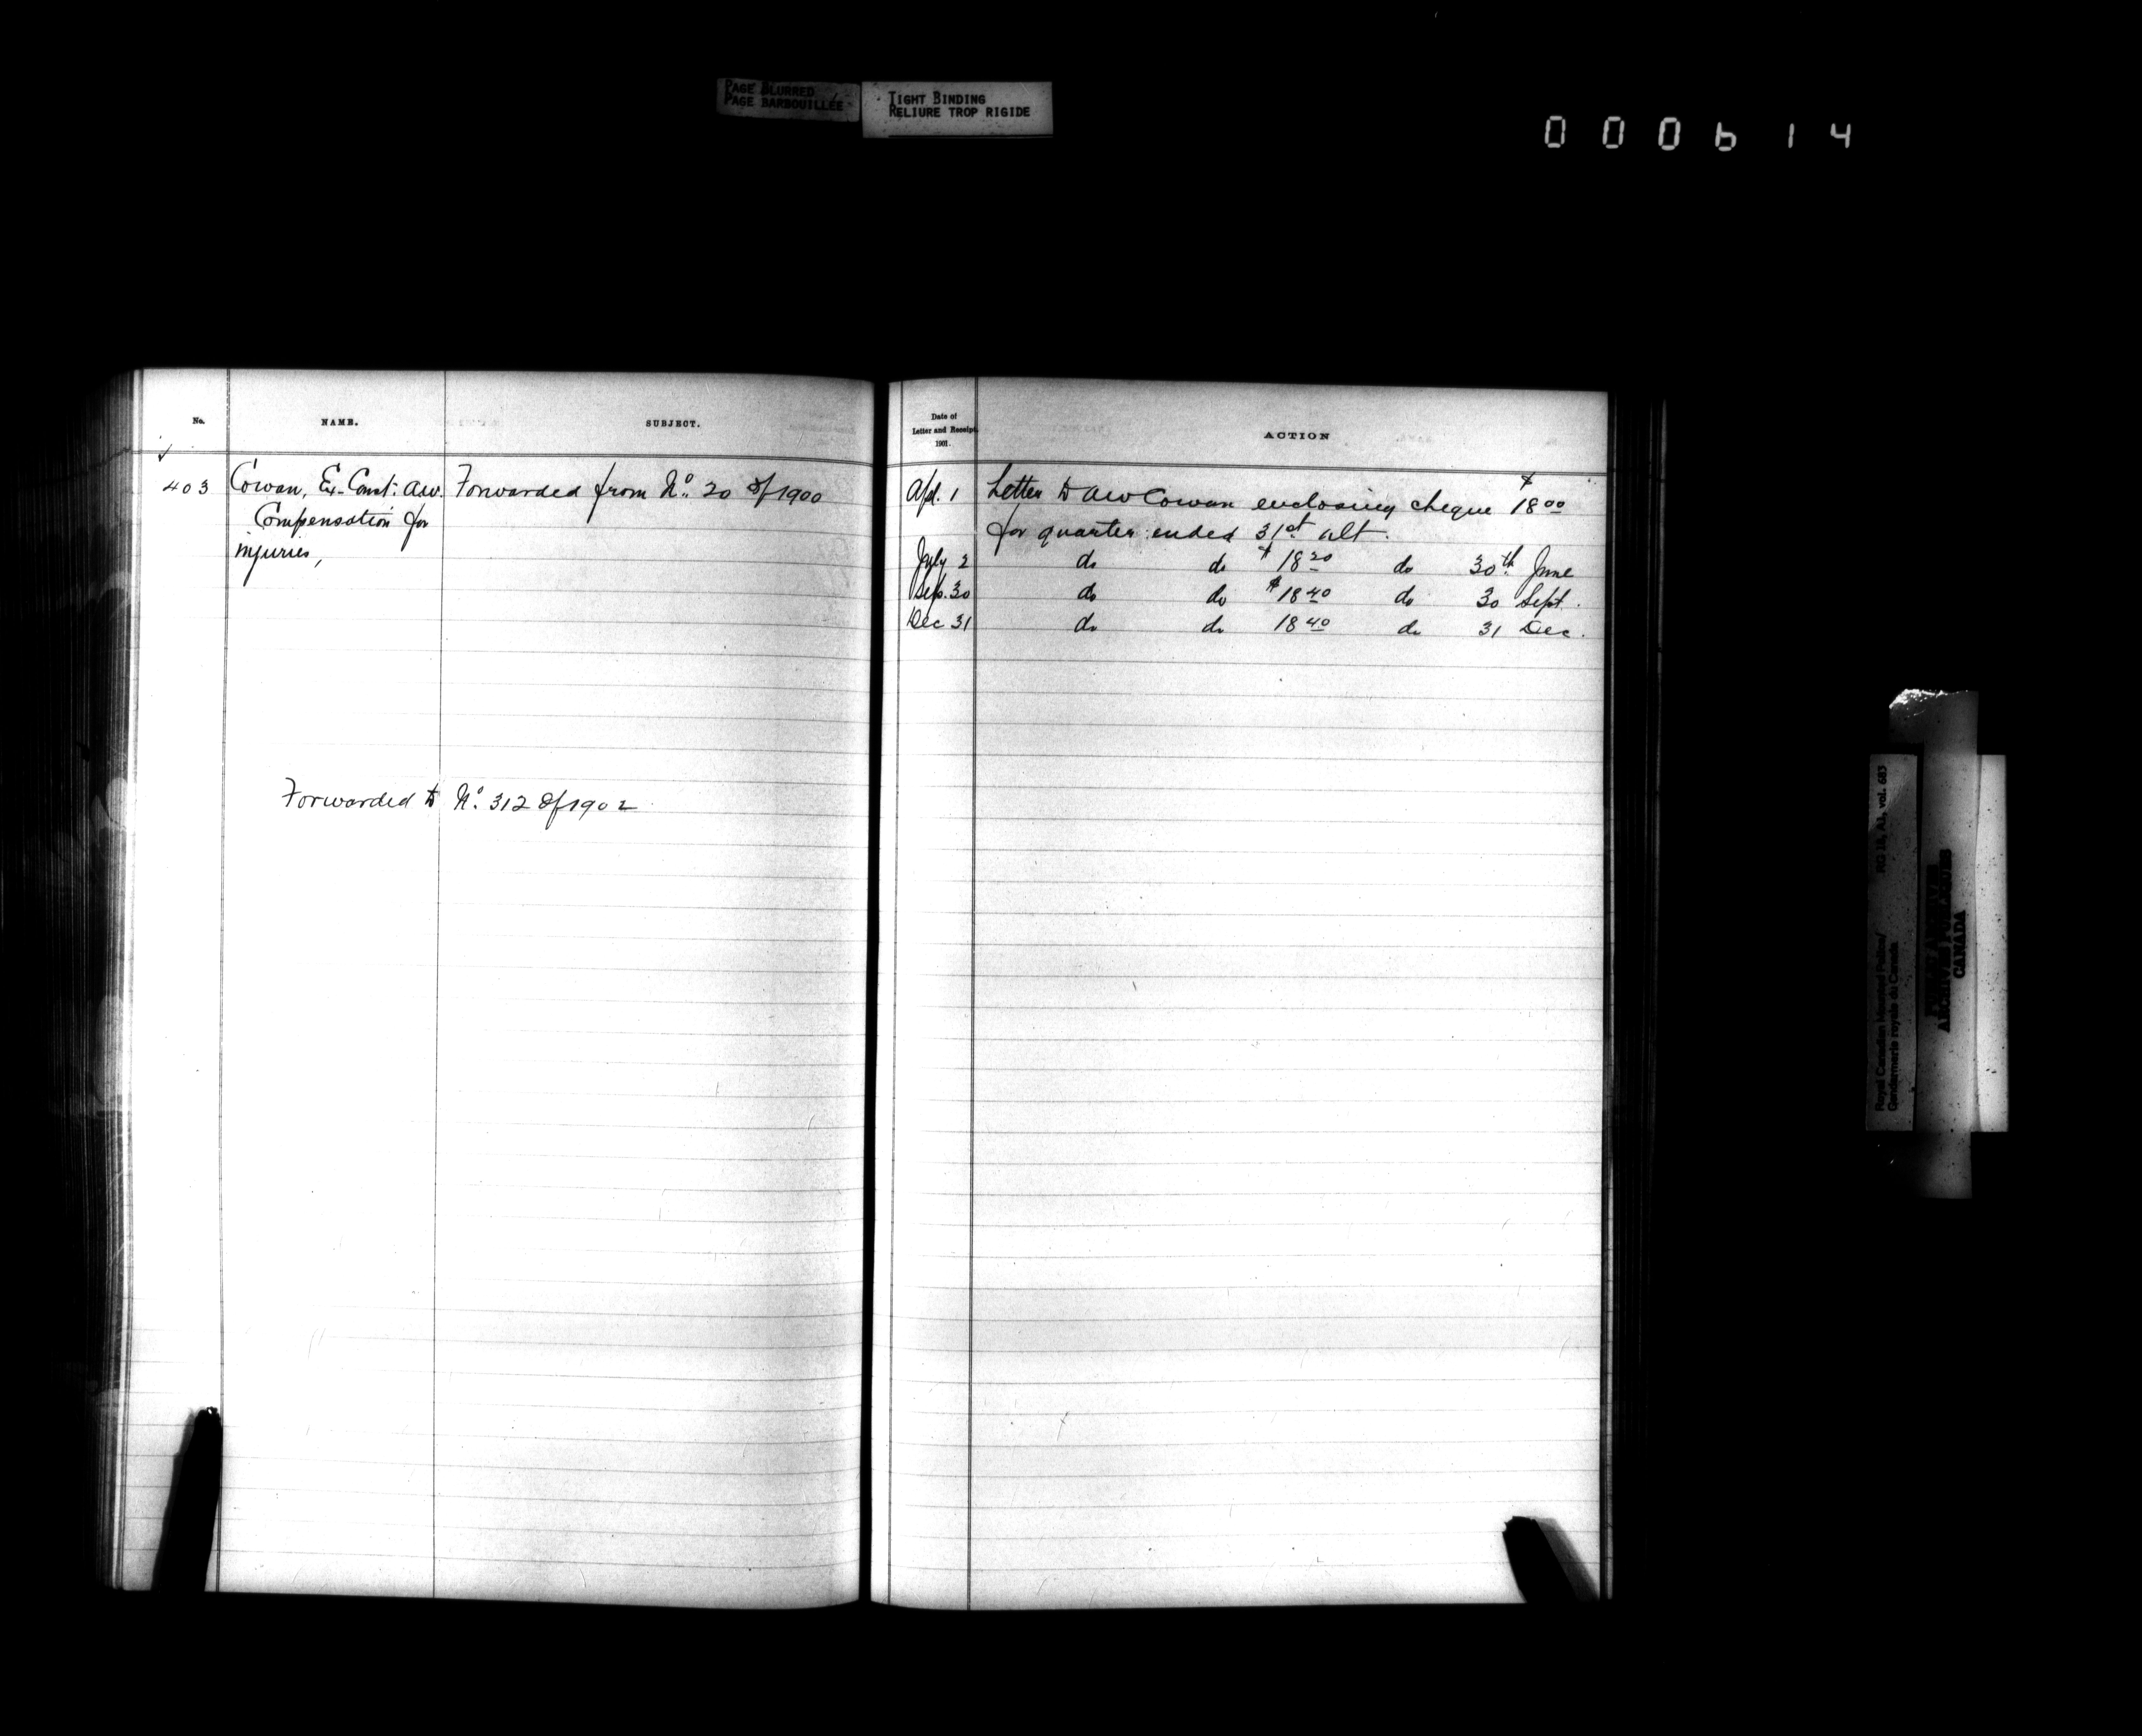 PAGE BLURRED
PAGE BARBOUILLÉE
TIGHT BINDING
RELIURE TROP RIGIDE
000614
No.
NAME.
SUBJECT.
403 Cowan, Ex-Const: A.W. Forwarded from No. 20 of 1900
Compensation for
injuries,
Forwarded to No. 312 of 1902
Date of
Letter and Receipt.
1901.
ACTION
Apl. 1 Letter to AW Cowan enclosing cheque $18 00
for quarter ended 31st ult.
July 2 do do $18 20 do 30th June
Sep. 30 do do $18 40 do 30 Sept.
Dec 31 do do 18 40 do 31 Dec.
Royal Canadian Mounted Police/ RG 18, A1, vol. 683
Gendarmerie royale du Canada
PUBLIC ARCHIVES
ARCHIVES PUBLIQUES
CANADA